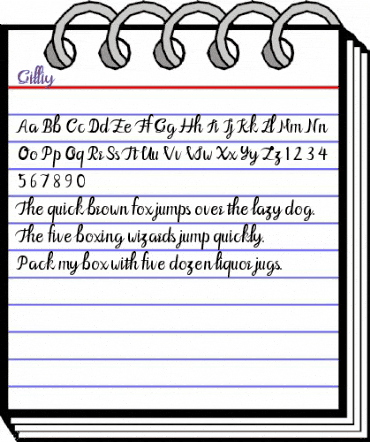 Gilliy
Aa Bb Cc Dd Ee Ff Gg Hh Ii Jj Kk Ll Mm Nn
Oo Pp Qq Rr Ss Tt Uu Vv Ww Xx Yy Zz 1 2 3 4
5 6 7 8 9 0
The quick brown fox jumps over the lazy dog.
The five boxing wizards jump quickly.
Pack my box with five dozen liquor jugs.